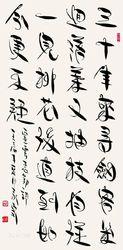 三十年來尋劍客幾
迴落葉又抽枝自從
一見桃花後直到如
今更不疑